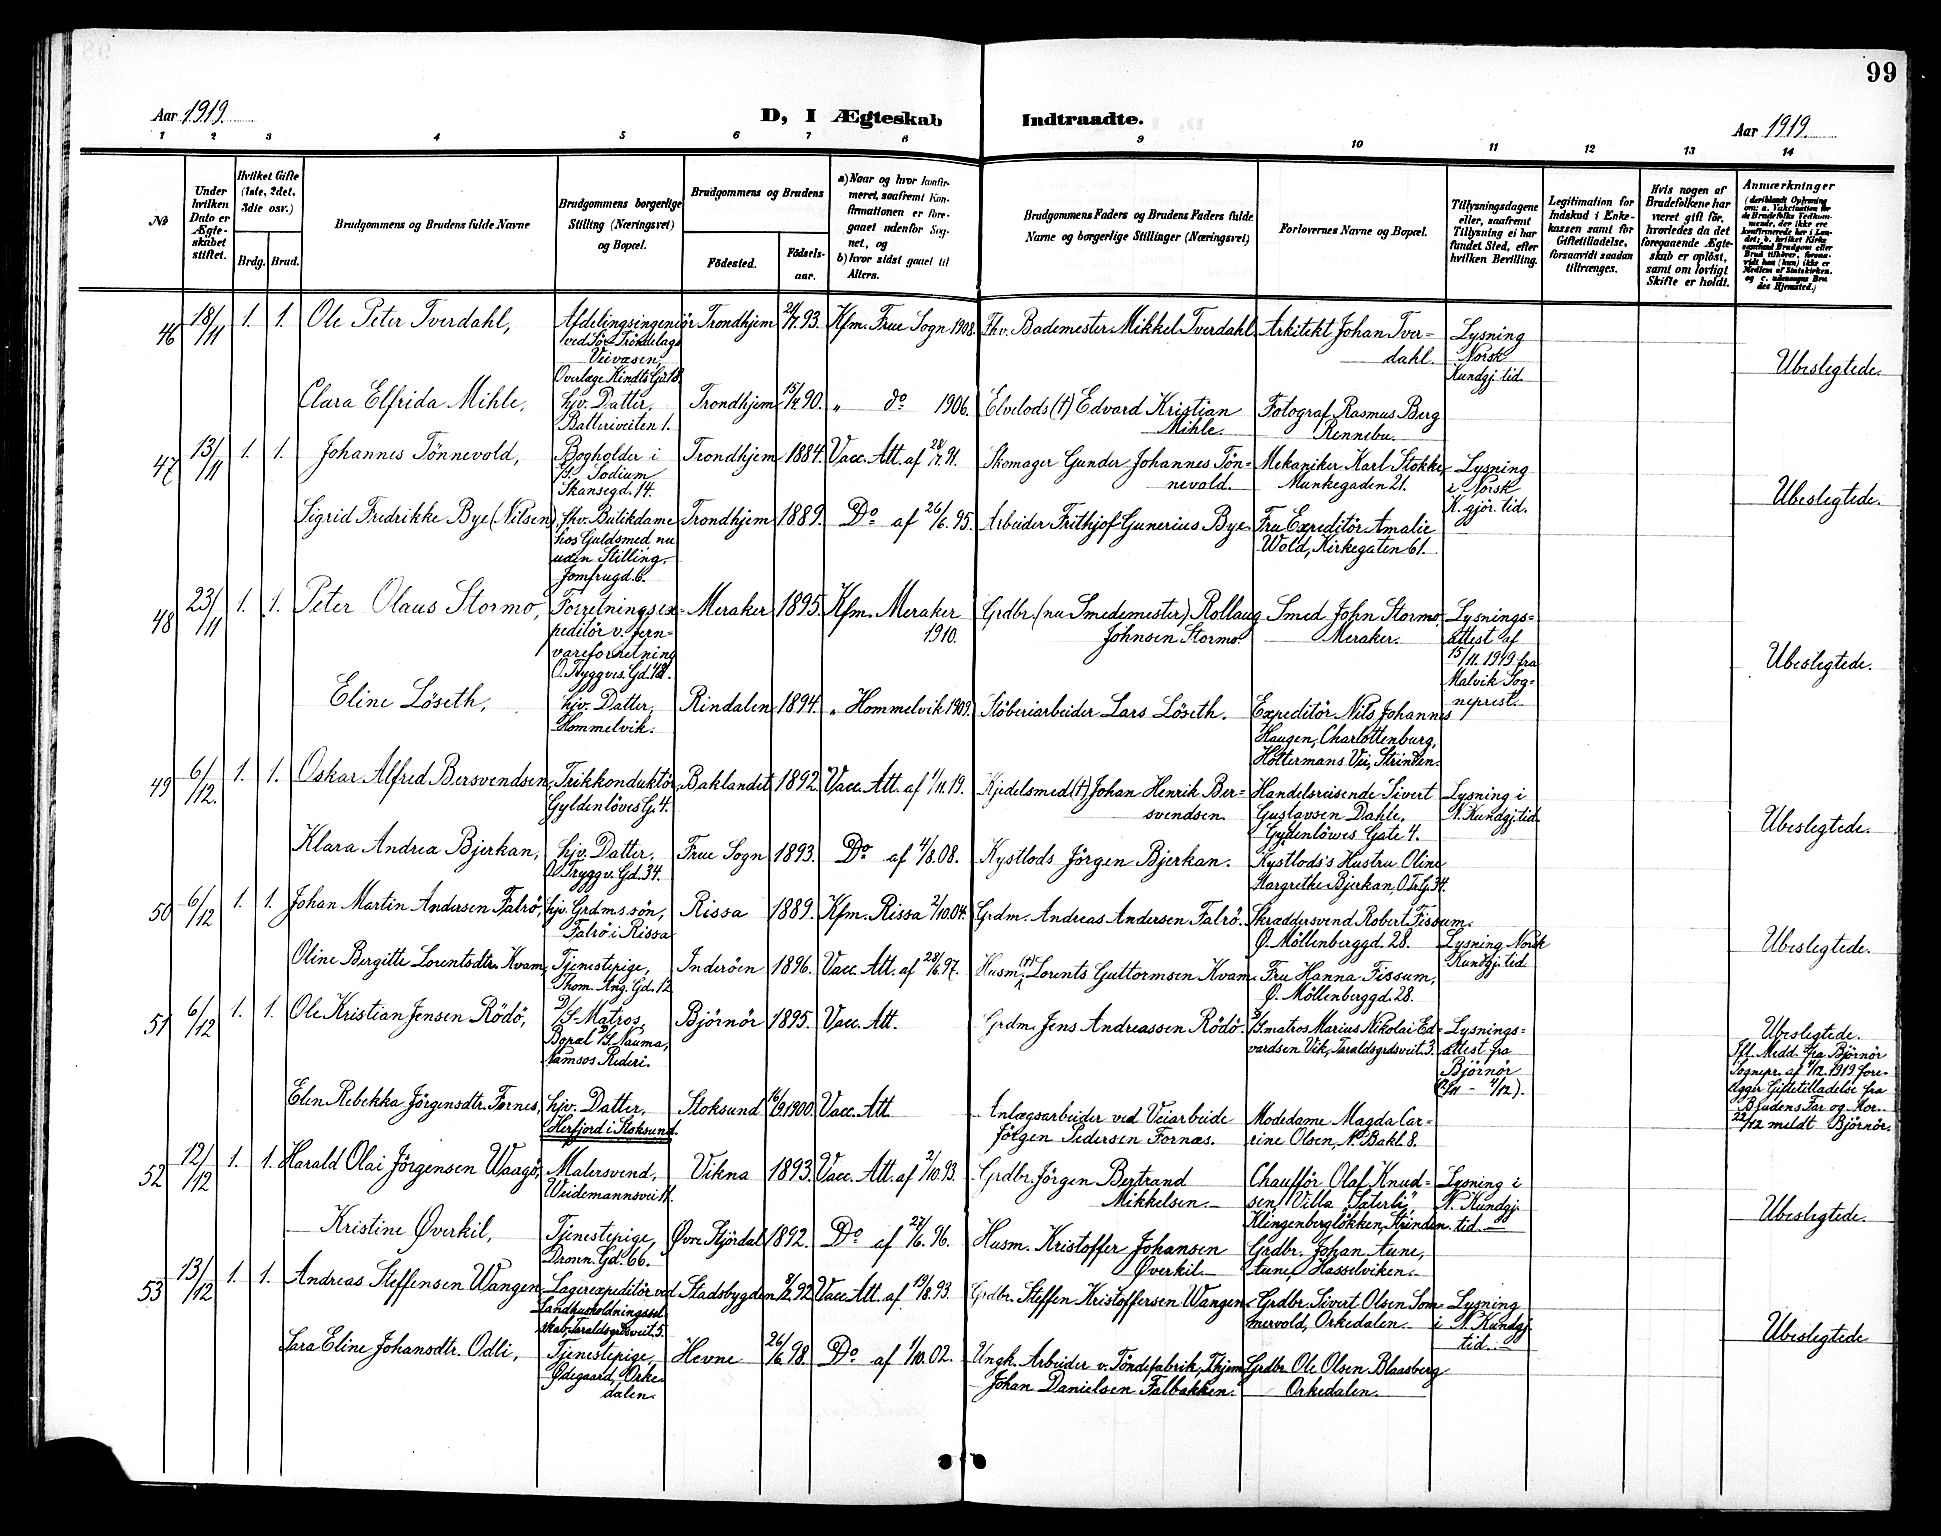 99
Aar 1919.
D, I Ægteskab Indtraadte.
Aar 1919.
1 2 3 4 5 6 7 8 9 10 11 12 13 14
No
Under hvilken Dato er Ægteskabet stiftet.
Hvilket Gifte (1ste, 2det, 3die osv.)
Brdg. Brud.
Brudgommens og Brudens fulde Navne
Brudgommens borgerlige Stilling (Næringsvei) og Bopæl.
Brudgommens og Brudens
Fødested.
Fødselsaar.
a) Naar og hvor konfirmeret, saafremt Konfirmationen er foregaaet udenfor Sognet, og
b) hvor sidst gaaet til Alters.
Brudgommens Faders og Brudens Faders fulde Navne og borgerlige Stillinger (Næringsvei)
Forlovernes Navne og Bopæl.
Tillysningsdagene eller, saafremt Tillysning ei har fundet Sted, efter hvilken Bevilling.
Legitimation for Indskud i Enkekassen samt for Giftetilladelse, forsaavidt saadan tiltrænges.
Hvis nogen af Brudefolkene har været gift før, hvorledes da det foregaaende Ægteskab er opløst, samt om lovligt Skifte er holdt.
Anmærkninger
46 18/11 1. 1. Ole Peter Tverdahl, Afdelingsingeniör ved Sör-Tröndelags Veivæsen, Overlæge Kindts Gd. 18. Trondhjem 21/7.93. Kfm. Frue Sogn 1908. Fhv. Bademester Mikkel Tverdahl Arkitekt Johan Tverdahl. Lysning Norsk Kundgj. tid. Ubeslegtede.
Clara Elfrida Mihle, hjv. Datter, Batteriveiten 1. Trondhjem 15/4.90. " do 1906. Elvelods (†) Edvard Kristian Mihle. Fotograf Rasmus Berg Rennebu.
47 13/11 1. 1. Johannes Tönnevold, Bogholder i Sodium Skansegd. 14. Trondhjem 1884. Vacc. Att. af 28/7.91. Skomager Gunder Johannes Tönnevold. Mekaniker Karl Stokke, Munkegaden 21. Lysning i Norsk K.gjör. tid. Ubeslegtede.
Sigrid Fredrikke Bye (Nilsen), fhv. Butikdame hos Guldsmed nu uden Stilling. Jomfrugd. 6. Trondhjem 1889. Do af 26/6.95. Arbeider Frithjof Gunerius Bye. Fru Expeditör Amalie Wold, Kirkegaten 61.
48 23/11 1. 1. Peter Olaus Stormo, Forretningsexpeditör v. Jernvareforretning O. Tryggvs. Gd. 48. Meraker 1895. Kfm. Meraker 1910. Grdbr. (nu Smedemester) Rollaug Johnsen Stormo Smed John Stormo, Meraker. Lysningsattest af 15/11.1919 fra Malvik Sogneprest. Ubeslegtede.
Eline Löseth, hjv. Datter, Hommelvik. Rindalen 1894. " Hommelvik 1909. Stöberiarbeider Lars Löseth. Expeditör Nils Johannes Haugen, Charlottenburg, Höltermans Vei, Strinden.
49 6/12. 1. 1. Oskar Alfred Bersvendsen, Trikkonduktör, Gyldenlöves G. 4. Baklandet 1892. Vacc. Att. af 1/11.19. Kjedelsmed (†) Johan Henrik Bersvendsen. Handelsreisende Sivert Gustavsen Dahle, Gydenlöwes Gate 4. Lysning i N. Kundgj. tid. Ubeslegtede.
Klara Andrea Bjerkan, hjv. Datter. O. Tryggv. Gd. 34. Frue Sogn 1893. Do af 4/8.08. Kystlods Jörgen Bjerkan. Kystlods's Hustru Oline Margrethe Bjerkan, O. Tr. G. 34.
50 6/12 1. 1. Johan Martin Andersen Falrö, hjv. Grdmssön, Falrö i Rissa Rissa 1889. Kfm. Rissa 2/10.04. Grdm. Andreas Andersen Falrö. Skræddersvend Robert Fissum. Ø. Möllenberggd. 28. Lysning Norsk Kundgj. tid. Ubeslegtede.
Oline Bergitte Lorentsdtr. Kvam, Tjenestepige, Thom. Ang. Gd. 12 Inderöen 1896. Vacc. Att. af 28/6.97. Husm. (†) Lorents Guttormsen Kvam. Fru Hanna Fissum, Ø. Möllenberggd. 28.
51 6/12 1. 1. Ole Kristian Jensen Rödö, D/S-Matros, Bopæl D/S Nauma, Namsos Rederi. Björnör 1895. Vacc. Att. Grdm. Jens Andreassen Rödö. D/S matros Marius Nikolai Edvardsen Vik, Taraldsgrdsveit. 3. Lysningsattest fra Björnör Ubeslegtede. Ifl. Medd. fra Björnör Sognepr. af 4/12.1919 foreligger Giftetilladelse fra Brudens Far og Mor. 22/12 meldt Björnör.
Elen Rebekka Jörgensdtr. Fornes, hjv. Datter, Herfjord i Stoksund. Stoksund 16/9.1900. Vacc. Att Anlægsarbeider ved Veiarbeide Jörgen Pedersen Fornæs. Modedame Magda Carine Olsen, N. Bakl. 8.
52 12/12 1. 1. Harald Olai Jörgensen Waagö, Malersvend, Weidemannsvei 11. Vikna 1893. Vacc. Att. af 2/10.93. Grdbr. Jörgen Bertrand Mikkelsen. Chaufför Olaf Knudsen, Villa "Sæterli", Klingenberglökken, Strinden. Lysning i N. Kundgj. tid. Ubeslegtede.
Kristine Øverkil, Tjenestepige, Dronn. Gd. 66. Øvre Stjördal 1892. Do af 27/6.96. Husm. Kristoffer Johansen Øverkil. Grdbr. Johan Aune, Aune, Hasselviken.
53 13/12 1. 1. Andreas Steffensen Wangen Lagerexpeditör ved Landhusholdningsselskab, Taraldsgrdsveit 5. Stadsbygden 92 Vacc Att. af 19/8.93. Grdbr. Steffen Kristoffersen Wangen. Grdbr. Sivert Olsen Sommervold, Orkedalen. Lysning i N. Kundgj. tid. Ubeslegtede
Sara Eline Johansdtr. Odli, Tjenestepige, Ødegaard, Orkedalen. Hevne 26/6.98. Do af 1/10.02. Ungk. Arbeider v. Töndefabrik, Thjem Johan Danielsen Falbakken. Grdbr Ole Olsen Blaasberg Orkedalen.